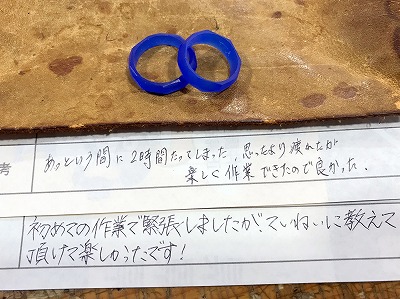 考
あっという間に2時間たってしまった、思ったより疲れたが
楽しく作業できたので良かった.
初めての作業で緊張しましたが、ていねいに教えて
頂けて楽しかったです!